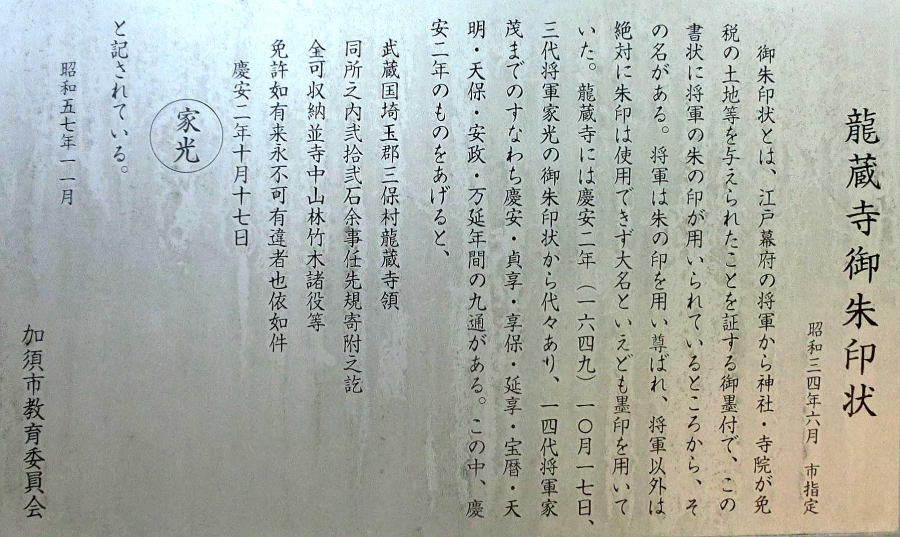 龍蔵寺御朱印状
昭和三四年六月　市指定
御朱印状とは、江戸幕府の将軍から神社・寺院が免
税の土地等を与えられたことを証する御墨付で、この
書状に将軍の朱の印が用いられているところから、そ
の名がある。将軍は朱の印を用い尊ばれ、将軍以外は
絶対に朱印は使用できず大名といえども墨印を用いて
いた。龍蔵寺には慶安二年（一六四九）一〇月一七日、
三代将軍家光の御朱印状から代々あり、一四代将軍家
茂までのすなわち慶安・貞享・享保・延享・宝暦・天
明・天保・安政・万延年間の九通がある。この中、慶
安二年のものをあげると、
武蔵国埼玉郡三保村龍蔵寺領
同所之内弐拾弐石余事任先規寄附之訖
全可収納並寺中山林竹木諸役等
免許如有来永不可有違者也依如件
慶安二年十月十七日
家光
と記されている。
昭和五七年一一月
加須市教育委員会